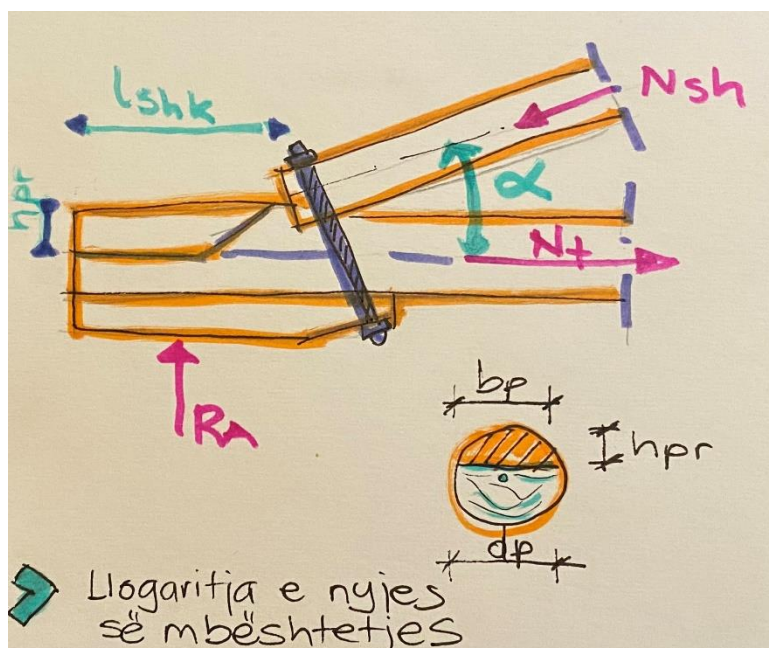 lshk
Nsh
hpr
α
N+
RA
bp
hpr
dp
Llogaritja e nyjes
së mbështetjes